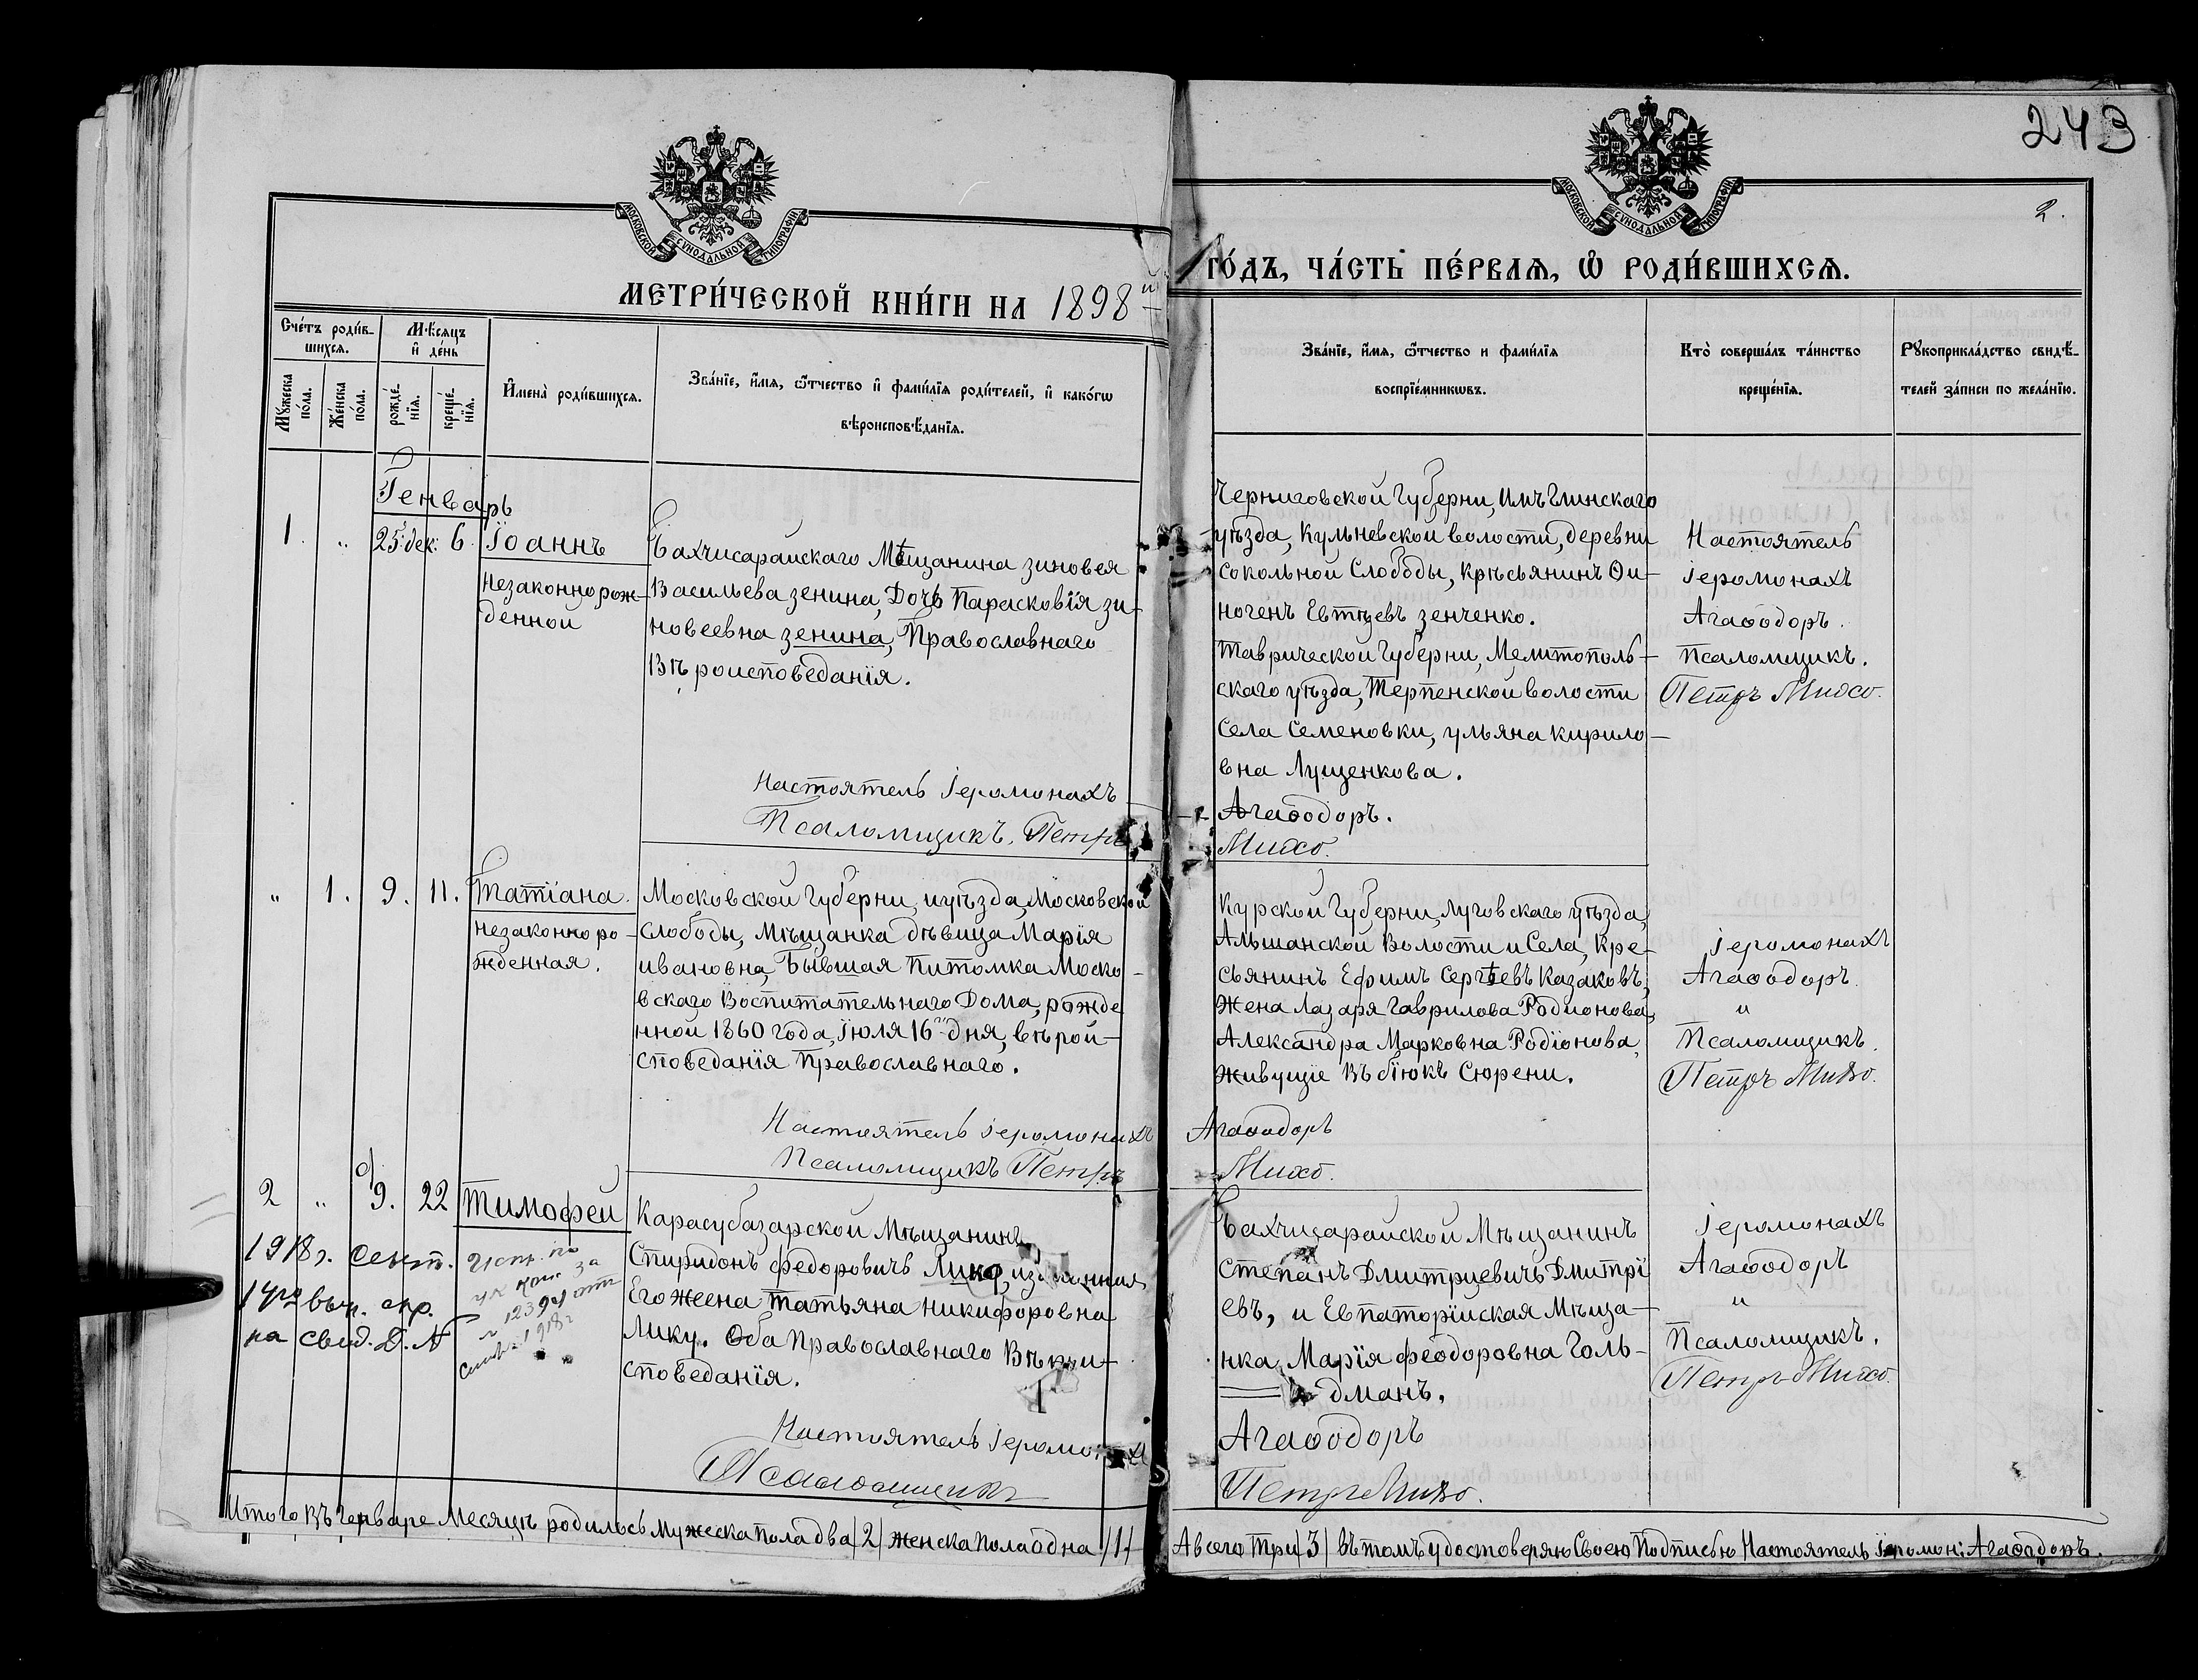 243
2.
МОСКОВСКОЙ СУНОДАЛЬНОЙ ТИПОГРАФІИ
МОСКОВСКОЙ СУНОДАЛЬНОЙ ТИПОГРАФІИ
МЕТРИ́ЧЕСКОЙ КНИ́ГИ НА 1898й
ГО́ДЪ, ЧА́СТЬ ПЕ́РВАѦ, Ѡ҆ РОДИ́ВШИХСѦ.
Сче́тъ роди́в-
шихсѧ.
Мꙋ́жеска
по́ла.
Же́нска
по́ла.
Мѣ́сѧцъ
и҆ де́нь
рожде́-
нїѧ.
креще́-
нїѧ.
И҆мена̀ роди́вшихсѧ.
Зва́нїе, и҆́мѧ, ѻ҆́тчество и҆ фами́лїѧ роди́телей, и҆ како́гѡ
вѣроисповѣ́данїѧ.
Зва́нїе, и҆́мѧ, ѻ҆́тчество и фами́лїѧ
воспрїе́мникѡвъ.
Кто̀ соверша́лъ та́инство
креще́нїѧ.
Рꙋкоприкла́дство свидѣ́-
телей за́писи по жела́нїю.
Генварь
1. „ 25: дек: 6. Іоаннъ
незаконнорож-
денной
Бахчисарайскаго Мѣщанина зиновея
Васильева зенина, Дочь Парасковія зи-
новеевна зенина, Православнаго
Вѣроисповеданія.
Настоятель іеромонахъ
Псаломщикъ, Петръ
Черниговской Губерни,
уѣзда, Кульневской волости, деревни
сокольной Слободы, крѣсьянинъ Ѳи-
ногенъ зенченко.
Таврической Губерни, Мелитополь-
скаго уѣзда, Терпенской волости
села семеновки, ульяна кирило-
вна Лущенкова.
Агаѳодоръ.
Михо.
Настоятель
іеромонахъ
Агаѳодоръ.
Псаломщикъ.
Петръ Михо.
„ 1. 9. 11. Татіана.
незаконноро-
жденная.
Московской Губерни, и уѣзда, Московской
слободы, мѣщанка дѣвица Марія
ивановна, Бывшая Питомка Моско-
вскаго Воспитательнаго Дома, рожде
нной 1860 года, іюля 16го дня, вѣрои-
споведанія православнаго.
Настоятель іеромонахъ
Псаломщикъ Петръ
Курской Губерни, луговскаго уѣзда,
Альшанской Волости и Села, Кре-
сьянинъ Ефимъ Сергѣевъ Казаковъ,
Жена Лазаря Гаврилова Родионова,
Александра Марковна Родіонова,
живущіе Въ біюкъ Сюрени.
Агаѳодоръ
Михо.
іеромонахъ
Агаѳодоръ.
и
Псаломщикъ.
Петръ Михо.
2 „ 9. 22 Тимофей
1918 г. сент.
14го выд. спр.
на свид. Д. №
1239
1918 г
Карасубазарской Мѣщанинъ
Спиридонъ федоровичъ Лико,
Его жеена татьяна никифоровна
Лику. Оба Православнаго Вѣрои-
споведанія.
Настоятель іеромонахъ
Псаломщикъ
Бахчисарайской Мѣщанинъ
Степанъ Дмитриевичъ Дмитрі
евъ, и Евпаторійская Мѣща-
нка, Марія феодоровна Голь-
дманъ.
Агаѳодоръ
Петръ Михо.
іеромонахъ
Агаѳодоръ
и
Псаломщикъ.
Петръ Михо.
Итого Въ генваре Месяцѣ родилось мужеска пола два /2/ женска пола одна /1/
А всего три /3/ вѣ томъ удостоверяю Своею Подписью Настоятель іеромон: Агаѳодоръ.